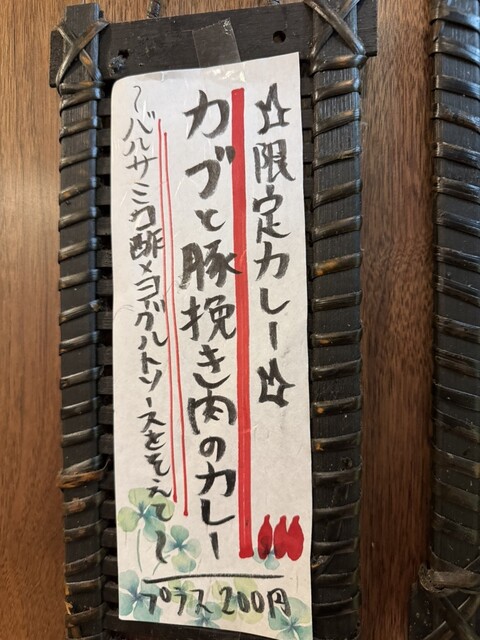 限定カレー
カブと豚挽き肉のカレー
〜バルサミコ酢×ヨーグルトソースをそえて〜
プラス200円